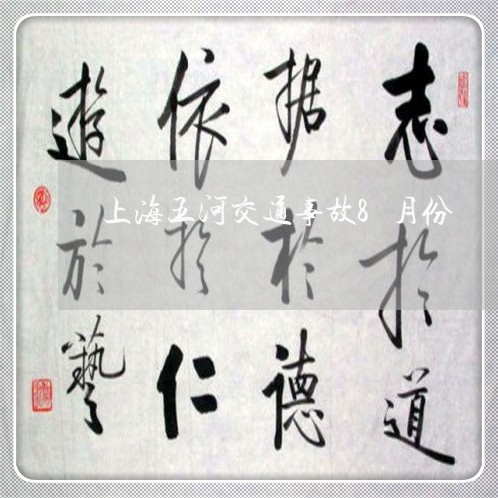 志於道
据於德
依於仁
遊於藝
上海五河交通事故8 月份